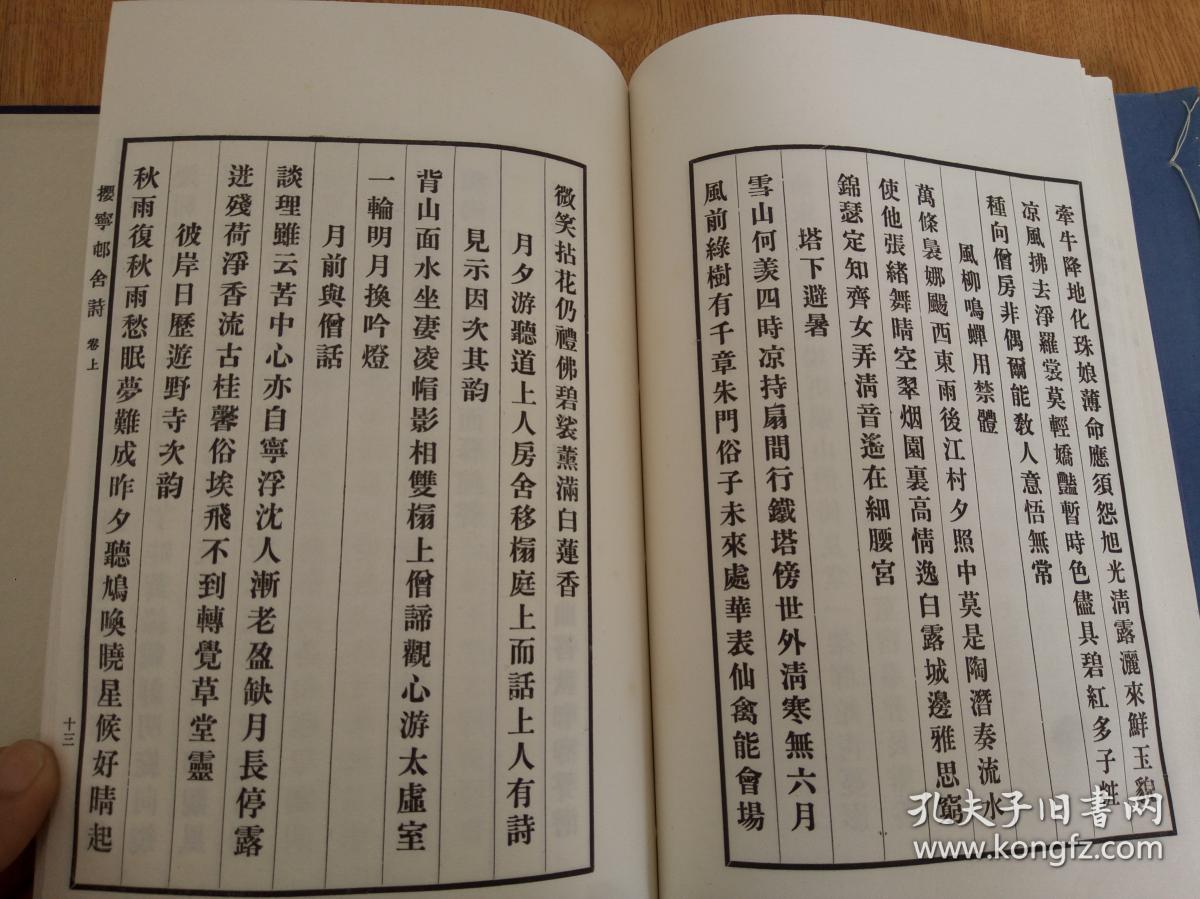 牽牛降地化珠娘薄命應須怨旭光淸露灑來鮮玉貌
凉風拂去淨羅裳莫輕嬌豔暫時色儘具碧紅多子性
種向僧房非偶爾能敎人意悟無常
風柳鳴蟬用禁體
萬條裊娜颺西東雨後江村夕照中莫是陶潛奏流水
使他張緒舞晴空翠烟園裏高情逸白露城邊雅思窮
錦瑟定知齊女弄淸音遙在細腰宮
塔下避暑
雪山何羨四時凉持扇間行鐵塔傍世外淸寒無六月
風前綠樹有千章朱門俗子未來處華表仙禽能會場
微笑拈花仍禮佛碧裟薰滿白蓮香
月夕游聽道上人房舍移榻庭上而話上人有詩
見示因次其韵
背山面水坐凄凌帽影相雙榻上僧諦觀心游太虛室
一輪明月換吟燈
月前與僧話
談理雖云苦中心亦自寧浮沈人漸老盈缺月長停露
迸殘荷淨香流古桂馨俗埃飛不到轉覺草堂靈
彼岸日歷遊野寺次韵
秋雨復秋雨愁眠夢難成昨夕聽鳩喚曉星候好晴起
攖寧邨舍詩 卷上
十三
孔夫子旧书网
www.kongfz.com